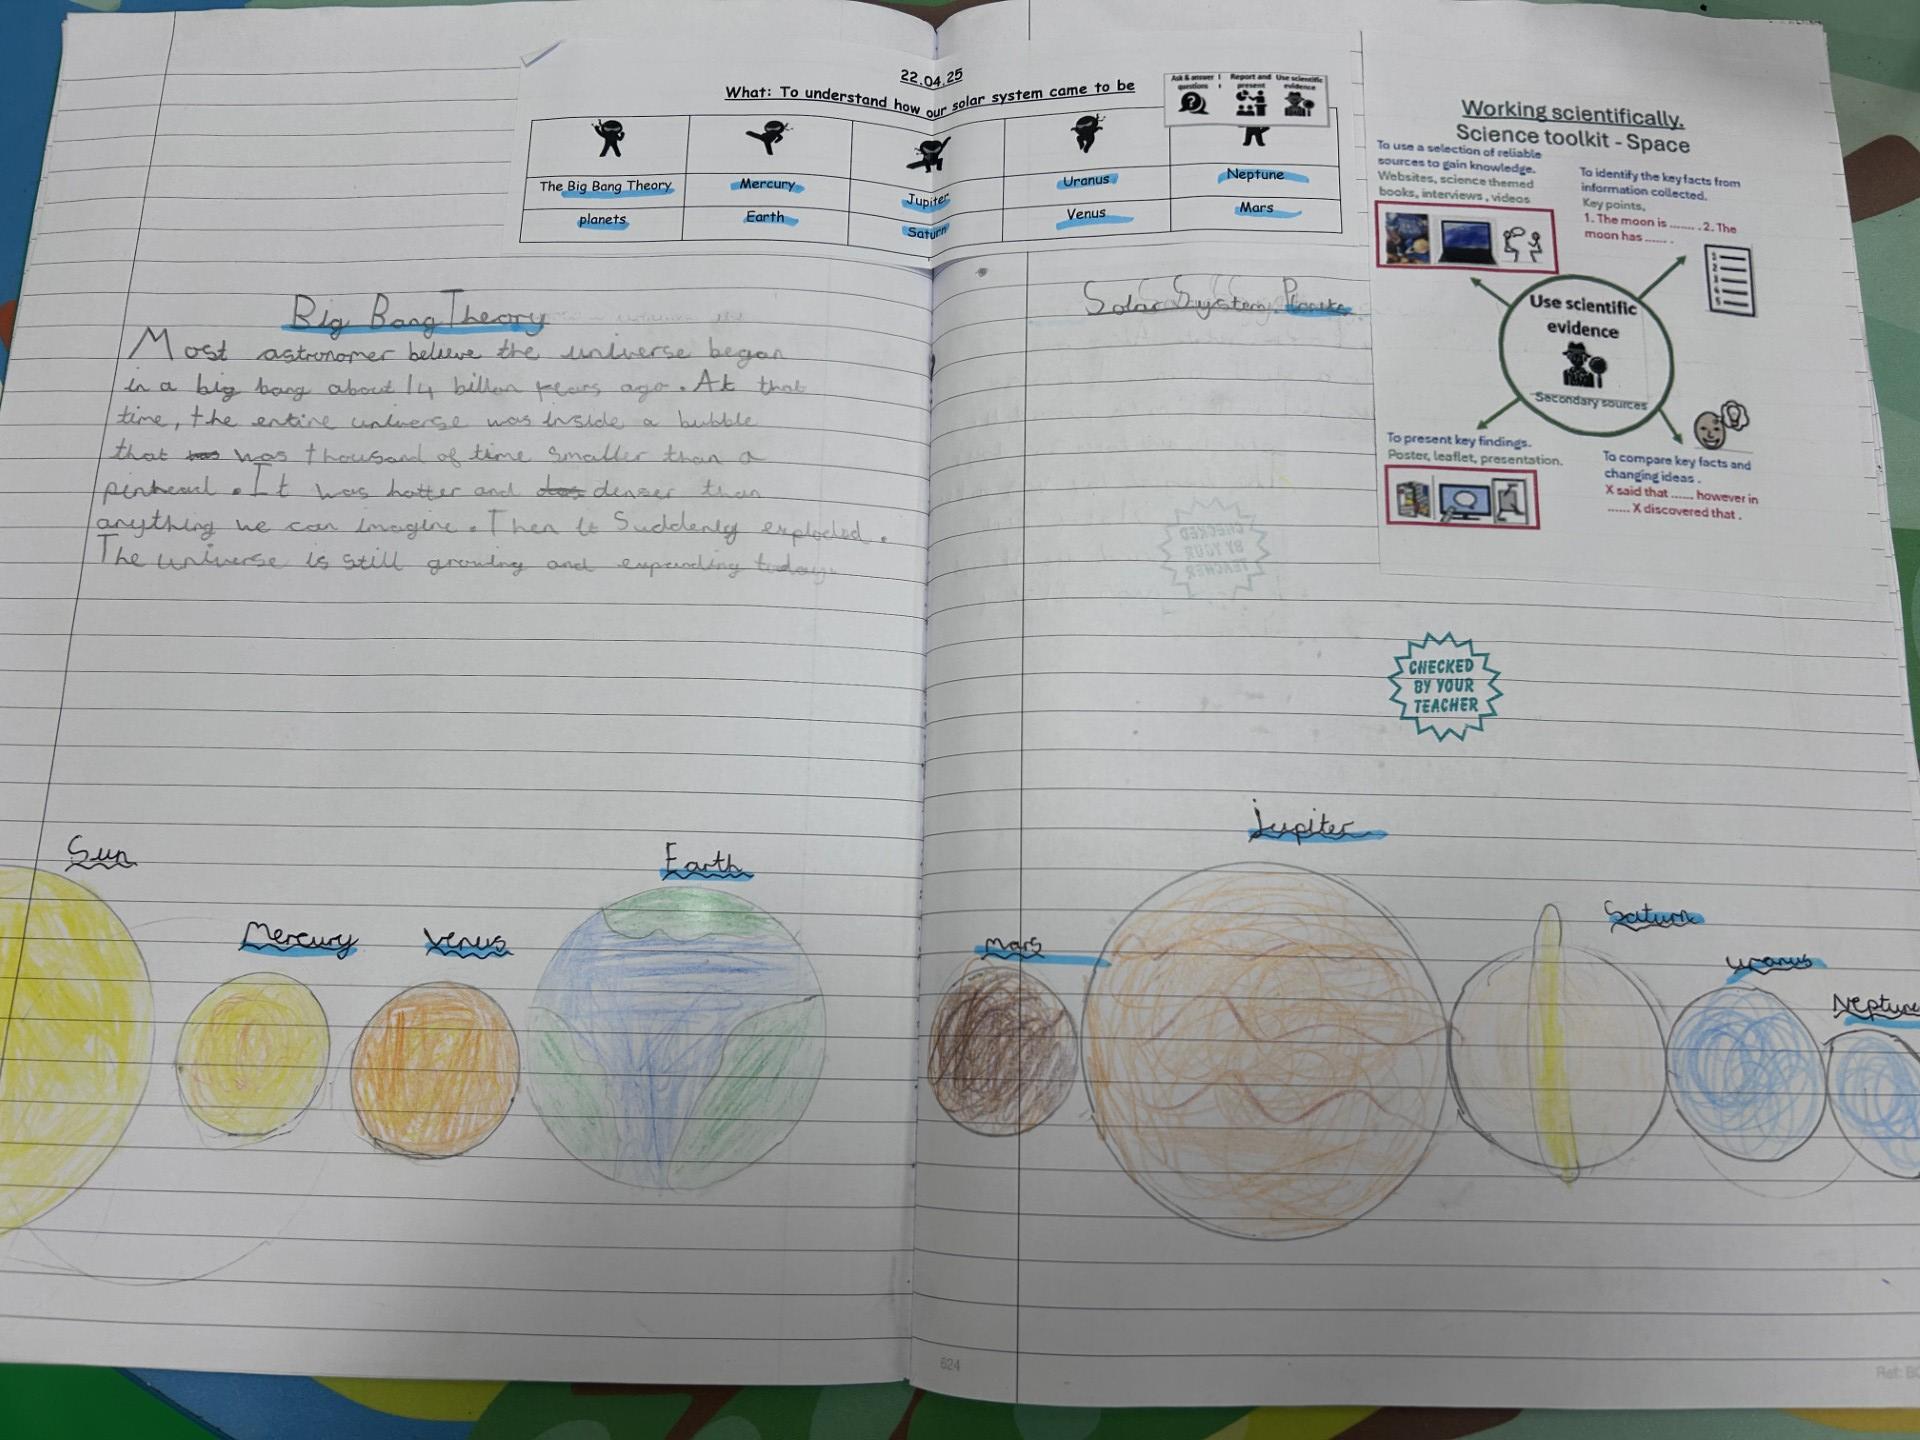 22.04.25
What: To understand how our solar system came to be
Ask & answer questions
Report and present
Use scientific evidence
The Big Bang Theory
Mercury
Jupiter
Uranus
Neptune
planets
Earth
Saturn
Venus
Mars
Big Bang Theory
Most astronomer believe the universe began
in a big bang about 14 billon years ago. At that
time, the entire universe was inside a bubble
that was thousand of time smaller than a
pinhead. It was hotter and denser than
anything we can imagine. Then it Suddenly exploded.
The universe is still growing and expanding today
Solar System Planets
Working scientifically.
Science toolkit - Space
To use a selection of reliable
sources to gain knowledge.
Websites, science themed
books, interviews, videos
To identify the key facts from
information collected.
Key points,
1. The moon is ....... . 2. The
moon has ...... .
Use scientific
evidence
Secondary sources
To present key findings.
Poster, leaflet, presentation.
To compare key facts and
changing ideas .
X said that ...... however in
...... X discovered that .
CHECKED
BY YOUR
TEACHER
Sun
Mercury
Venus
Earth
Mars
Jupiter
Saturn
Uranus
Neptune
624